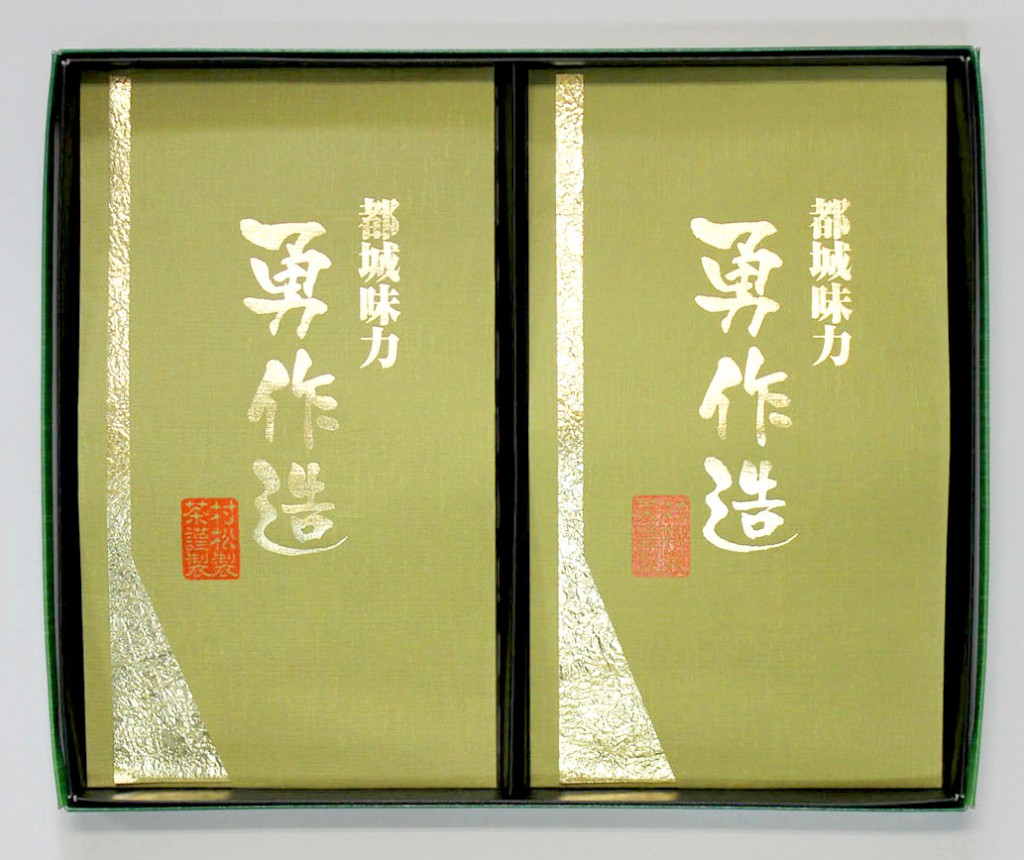 都城味力
勇作造
村松製
茶謹製
都城味力
勇作造